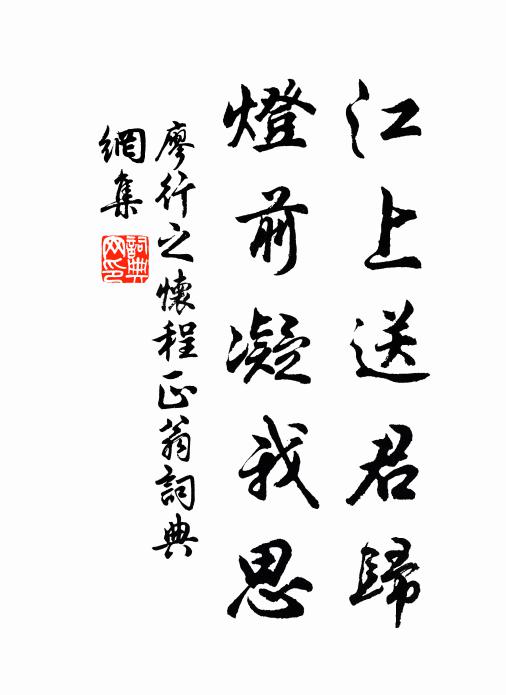 江上送君歸
燈前凝我思
廖行之懷程正翁詞典
網集
詞典
网印